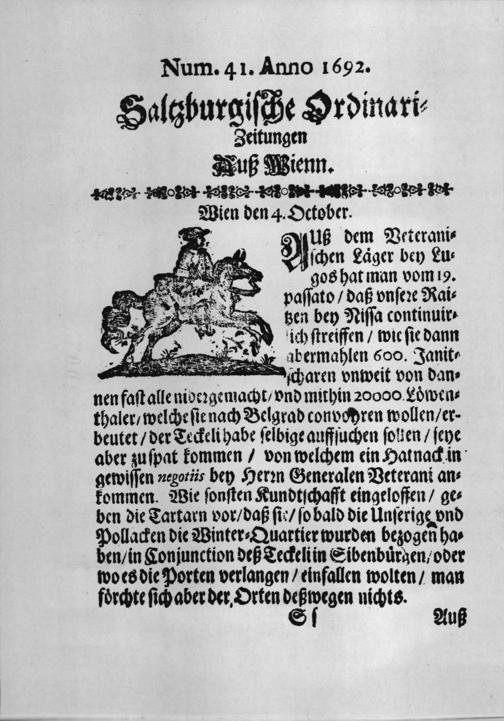 Num. 41. Anno 1692.
Saltzburgische Ordinari-
Zeitungen
Auß Wienn.
Wien den 4. October.
AUß dem Veterani-
schen Läger bey Lu-
gos hat man vom 19.
passato / daß vnsere Rai-
tzen bey Nissa continuir-
lich streiffen / wie sie dann
abermahlen 600. Janit-
scharen vnweit von dan-
nen fast alle nidergemacht / vnd mithin 20000. Löwen-
thaler / welche sie nach Belgrad convoyren wollen / er-
beutet / der Teckeli habe selbige auffsuchen sollen / seye
aber zu spat kommen / von welchem ein Hatnack in
gewissen negotiis bey Herrn Generalen Veterani an-
kommen. Wie sonsten Kundtschafft eingeloffen / ge-
ben die Tartarn vor / daß sie / so bald die Unserige vnd
Pollacken die Winter-Quartier wurden bezogen ha-
ben / in Conjunction deß Teckeli in Sibenbürgen / oder
wo es die Porten verlangen / einfallen wolten / man
förchte sich aber der Orten deßwegen nichts.
S s Auß